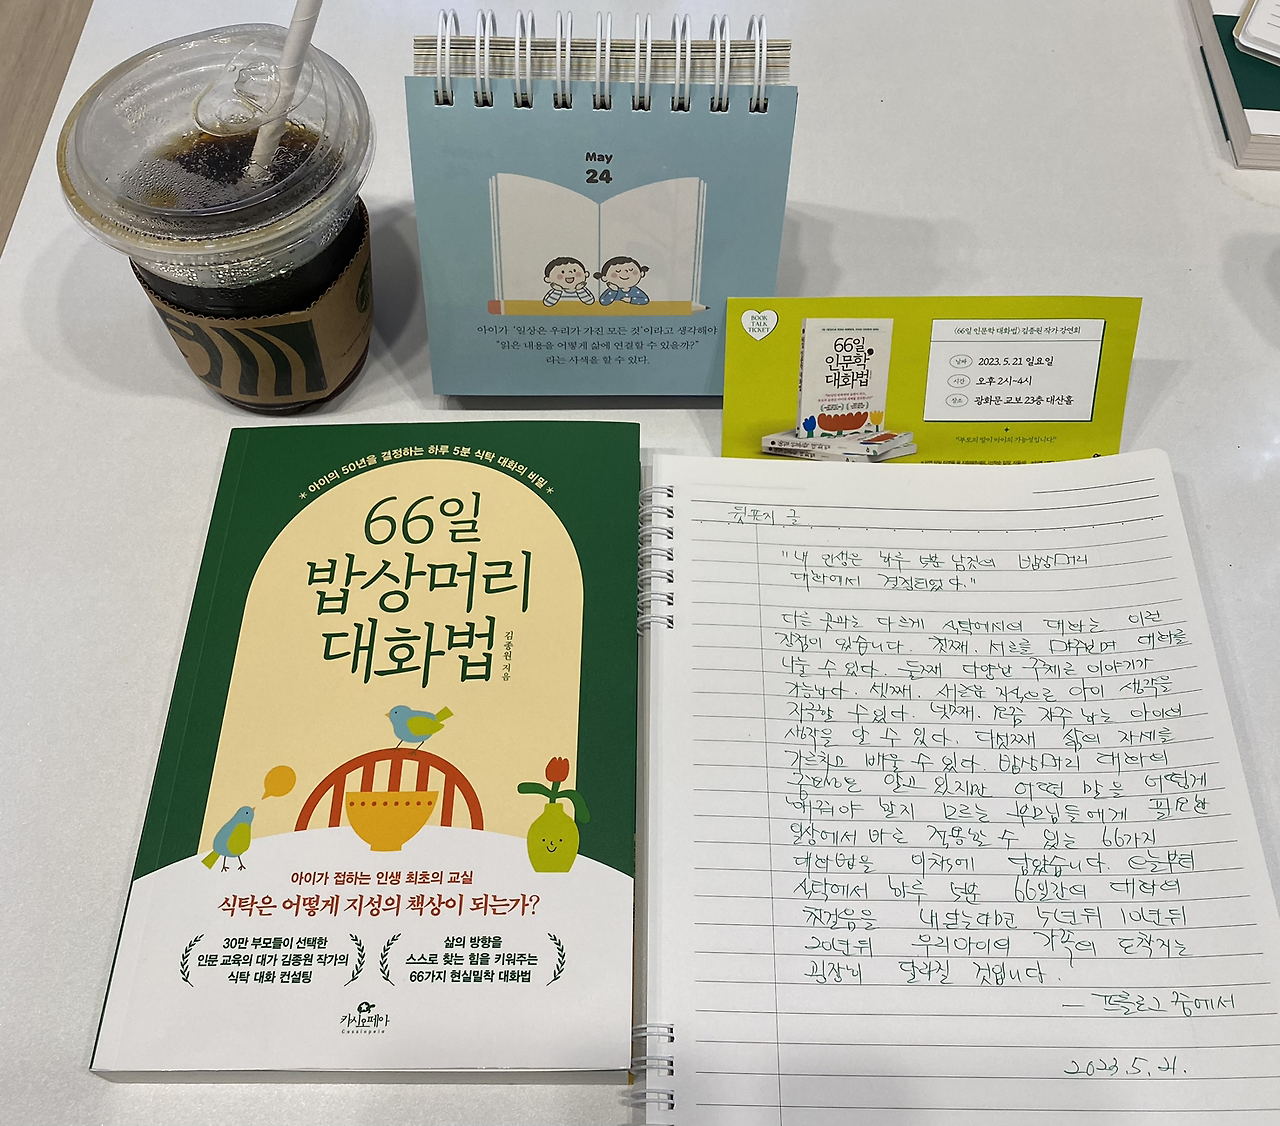 May
24
아이가 '일상은 우리가 가진 모든 것'이라고 생각해야
"읽은 내용을 어떻게 삶에 연결할 수 있을까?"
라는 사색을 할 수 있다.
BOOK
TALK
TICKET
66일
인문학
대화법
〈66일 인문학 대화법〉 김종원 작가 강연회
날짜 2023. 5. 21 일요일
시간 오후 2시~4시
장소 광화문 교보 23층 대산홀
"부모의 말이 아이의 가능성입니다!"
아이의 50년을 결정하는 하루 5분 식탁 대화의 비밀
66일
밥상머리
대화법
김종원 지음
아이가 접하는 인생 최초의 교실
식탁은 어떻게 지성의 책상이 되는가?
30만 부모들이 선택한
인문 교육의 대가 김종원 작가의
식탁 대화 컨설팅
삶의 방향을
스스로 찾는 힘을 키워주는
66가지 현실밀착 대화법
카시오페아
Cassiopeia
뒷표지 글
"내 인생은 하루 5분 남짓의 밥상머리
대화에서 결정되었다."
다른 곳과는 다르게 식탁에서의 대화는 이런
장점이 있습니다. 첫째. 서로를 마주보며 대화를
나눌 수 있다. 둘째 다양한 주제로 이야기가
가능하다. 셋째. 새로운 지식으로 아이 생각을
자극할 수 있다. 넷째. 요즘 자주 하는 아이의
생각을 알 수 있다. 다섯째 삶의 자세를
가르치고 배울 수 있다. 밥상머리 대화의
중요성은 알고 있지만 어떤 말을 어떻게
해줘야 할지 모르는 부모님들에게 필요한
일상에서 바로 적용할 수 있는 66가지
대화법을 이 책에 담았습니다. 오늘부터
식탁에서 하루 5분 66일간의 대화의
첫걸음을 내딛는다면 5년뒤 10년뒤
20년뒤 우리아이와 가족의 도착지는
굉장히 달라질 것입니다.
- 프롤로그 중에서
2023. 5. 21.